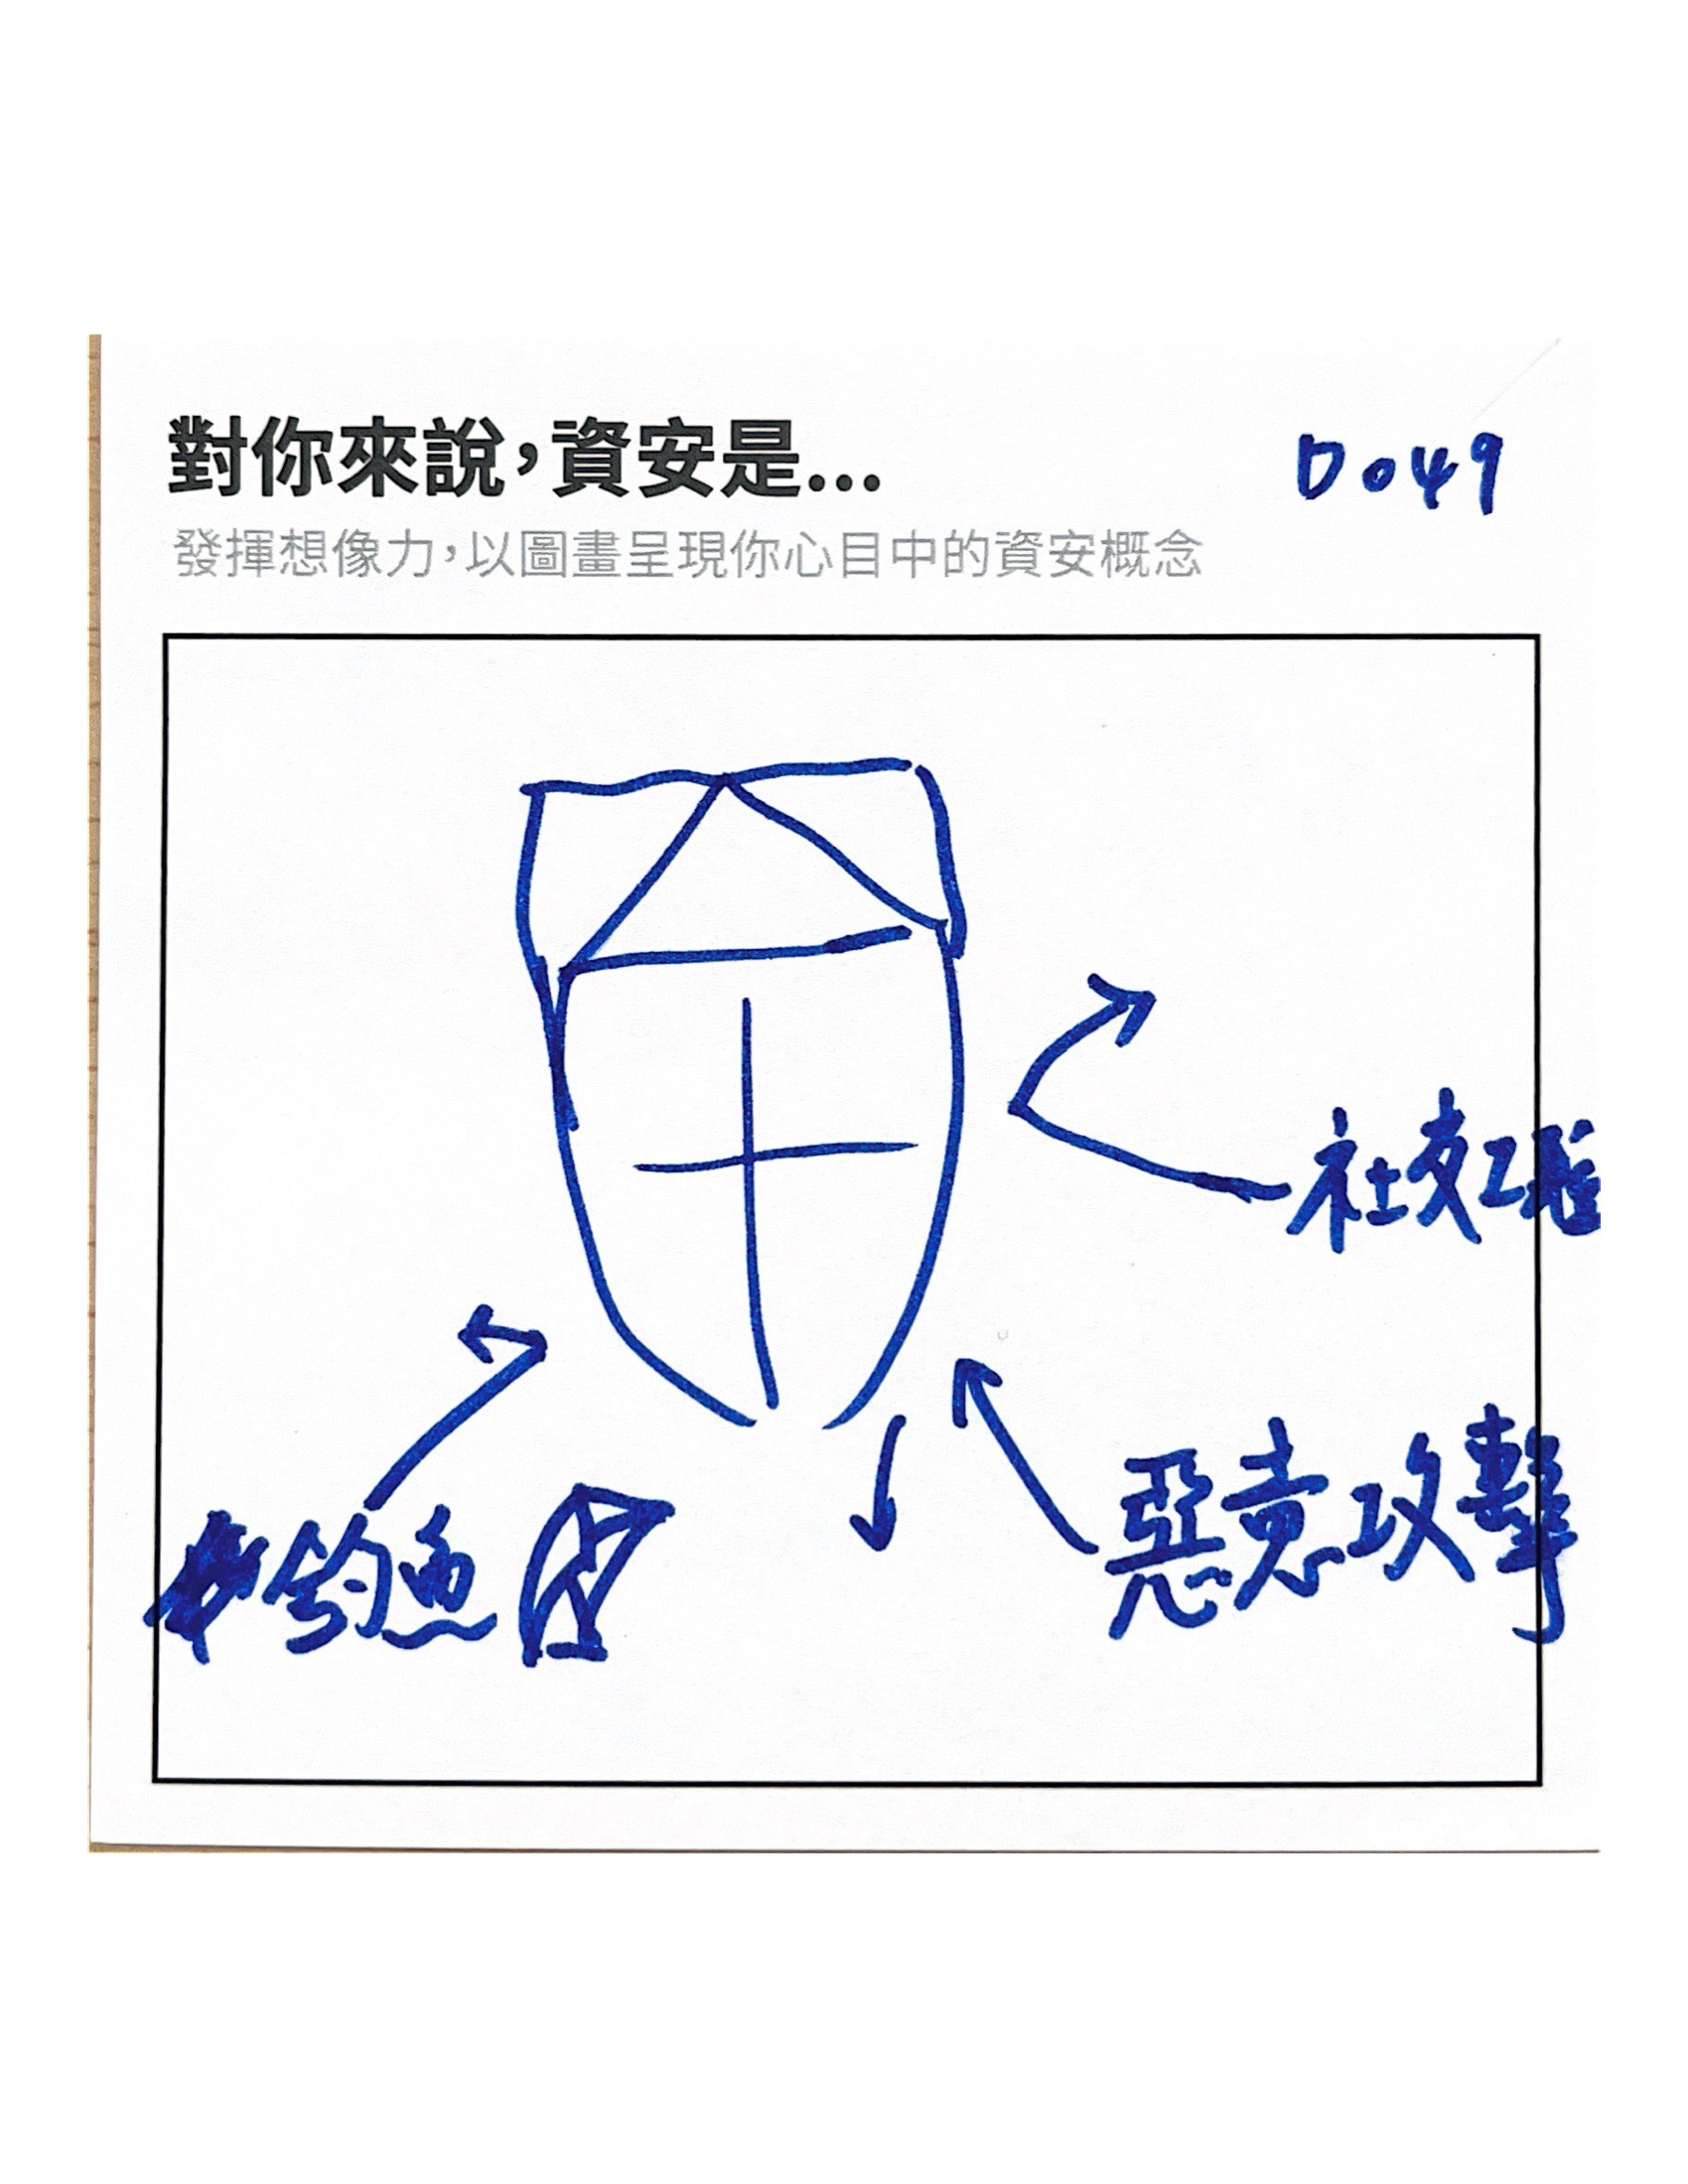 對你來說，資安是...
D049
發揮想像力，以圖畫呈現你心目中的資安概念
社交工程
釣魚
惡意攻擊